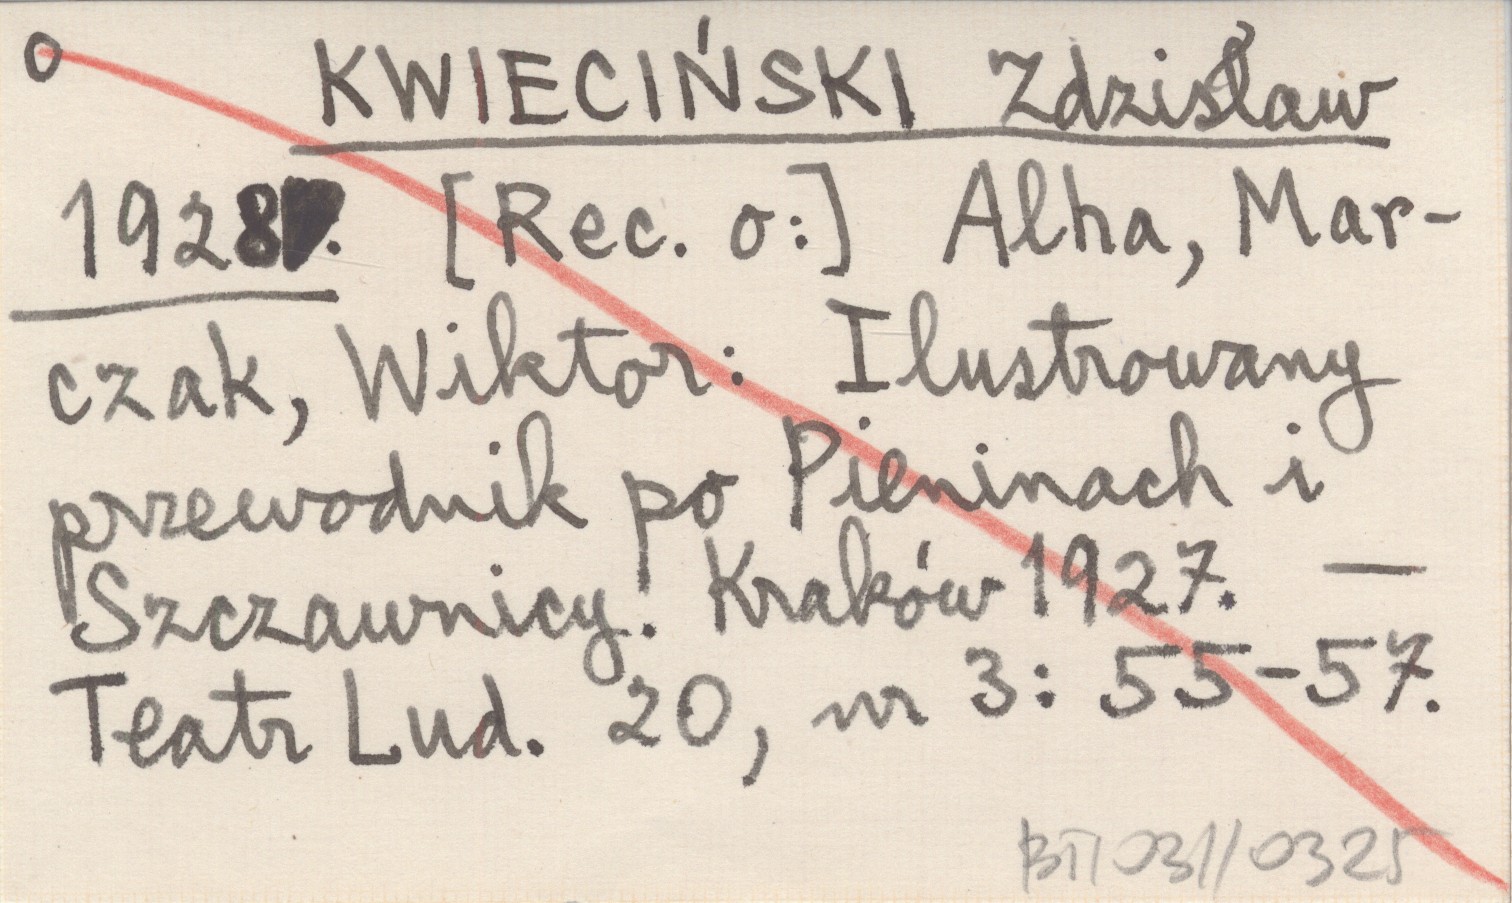 KWIECIŃSKI Zdzisław
1928. [Rec. o:] Alha, Mar-
czak, Wiktor: Ilustrowany
przewodnik po Pieninach i
Szczawnicy. Kraków 1927. —
Teatr Lud. 20, nr 3: 55-57.
BTI 031//0325